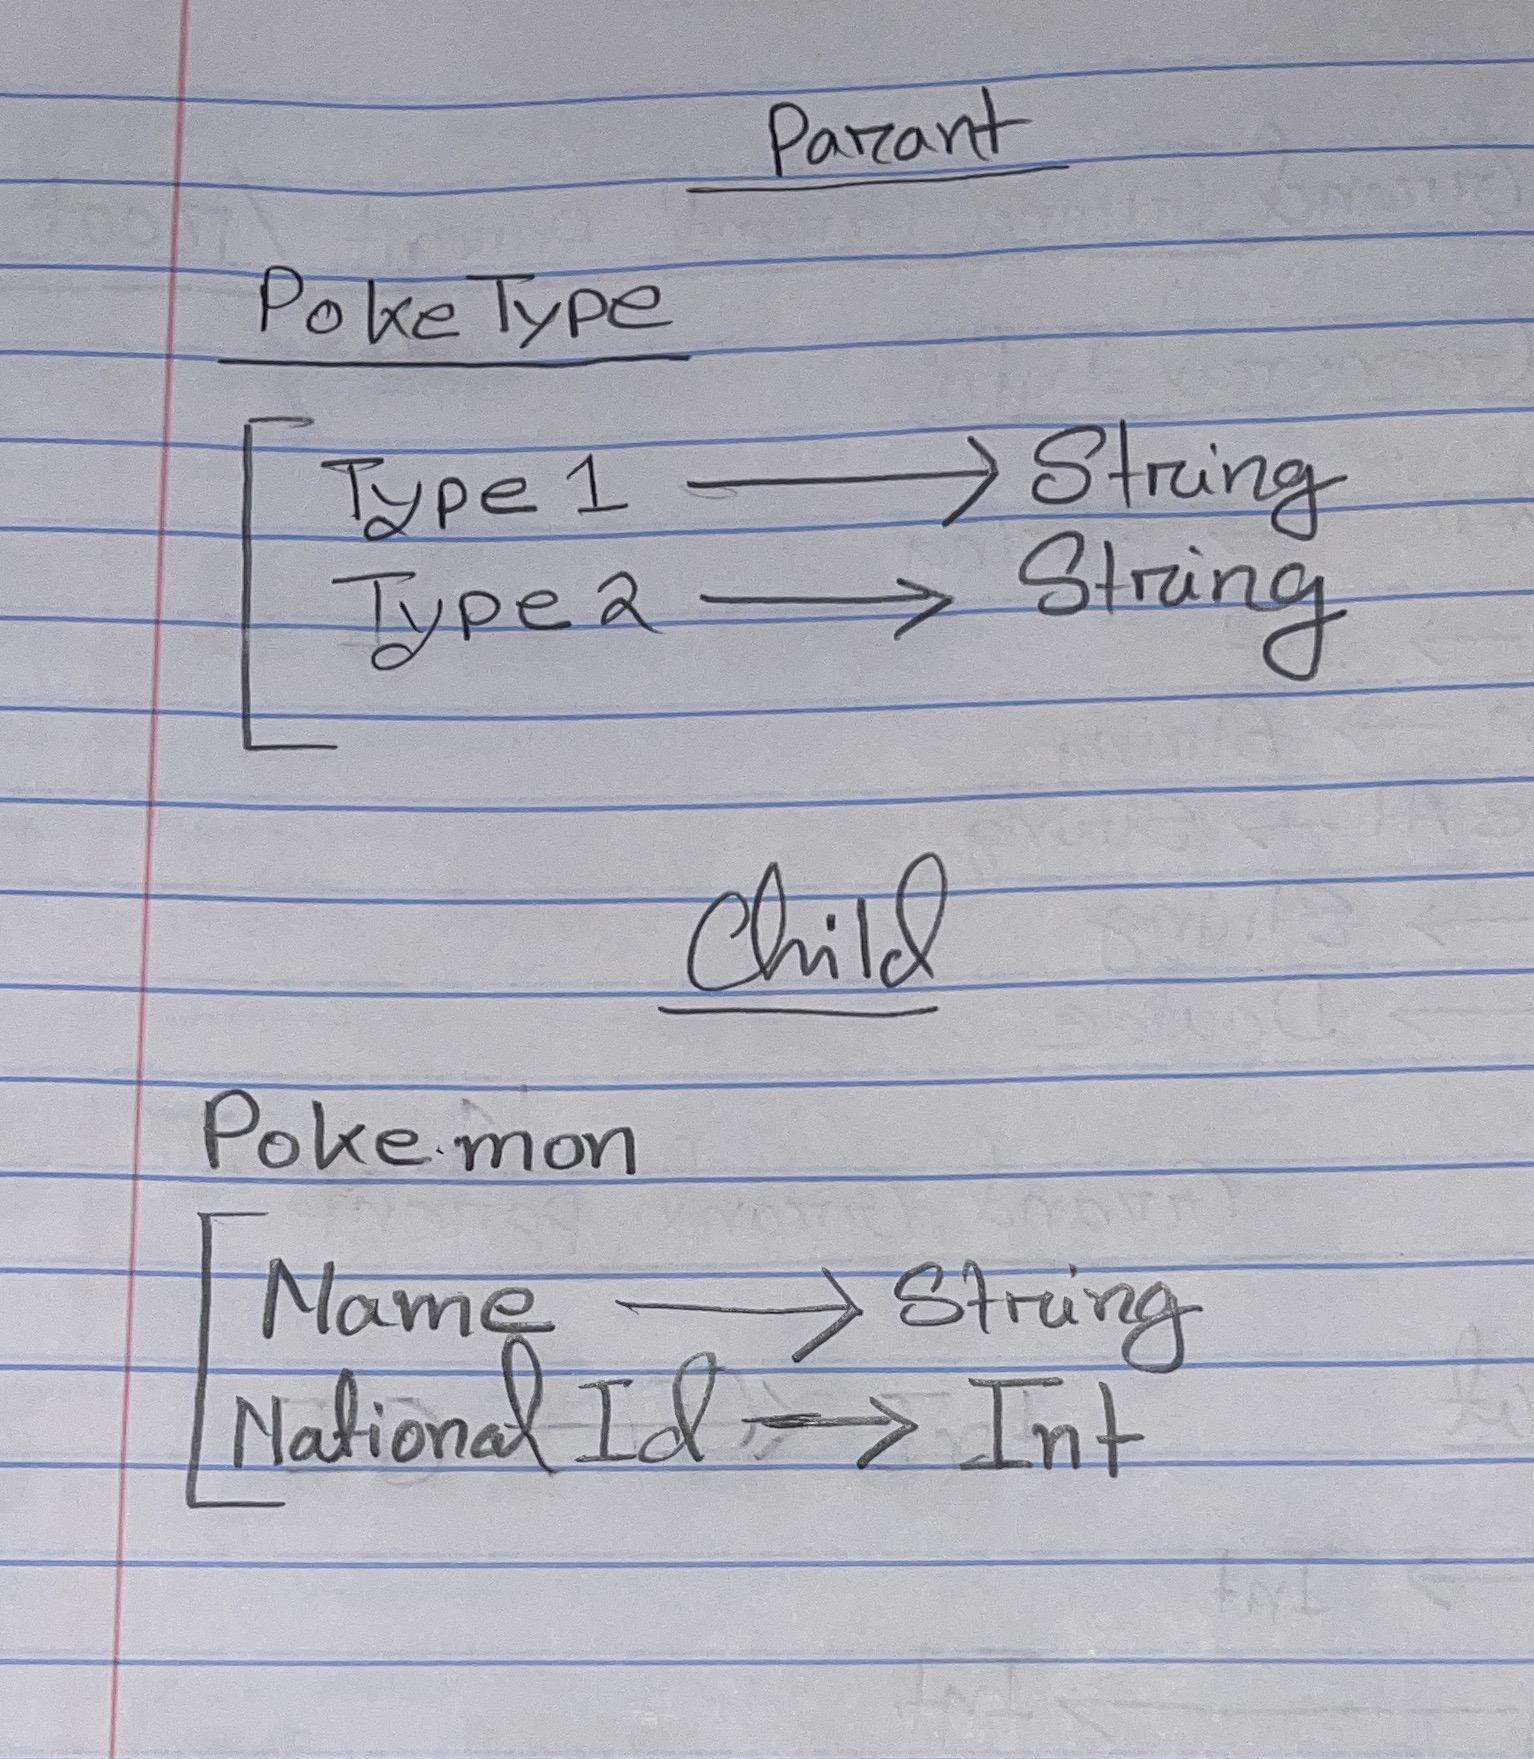 Parant
Poke Type
Type 1 → String
Type 2 → String
Child
Poke.mon
Name → String
National Id → Int